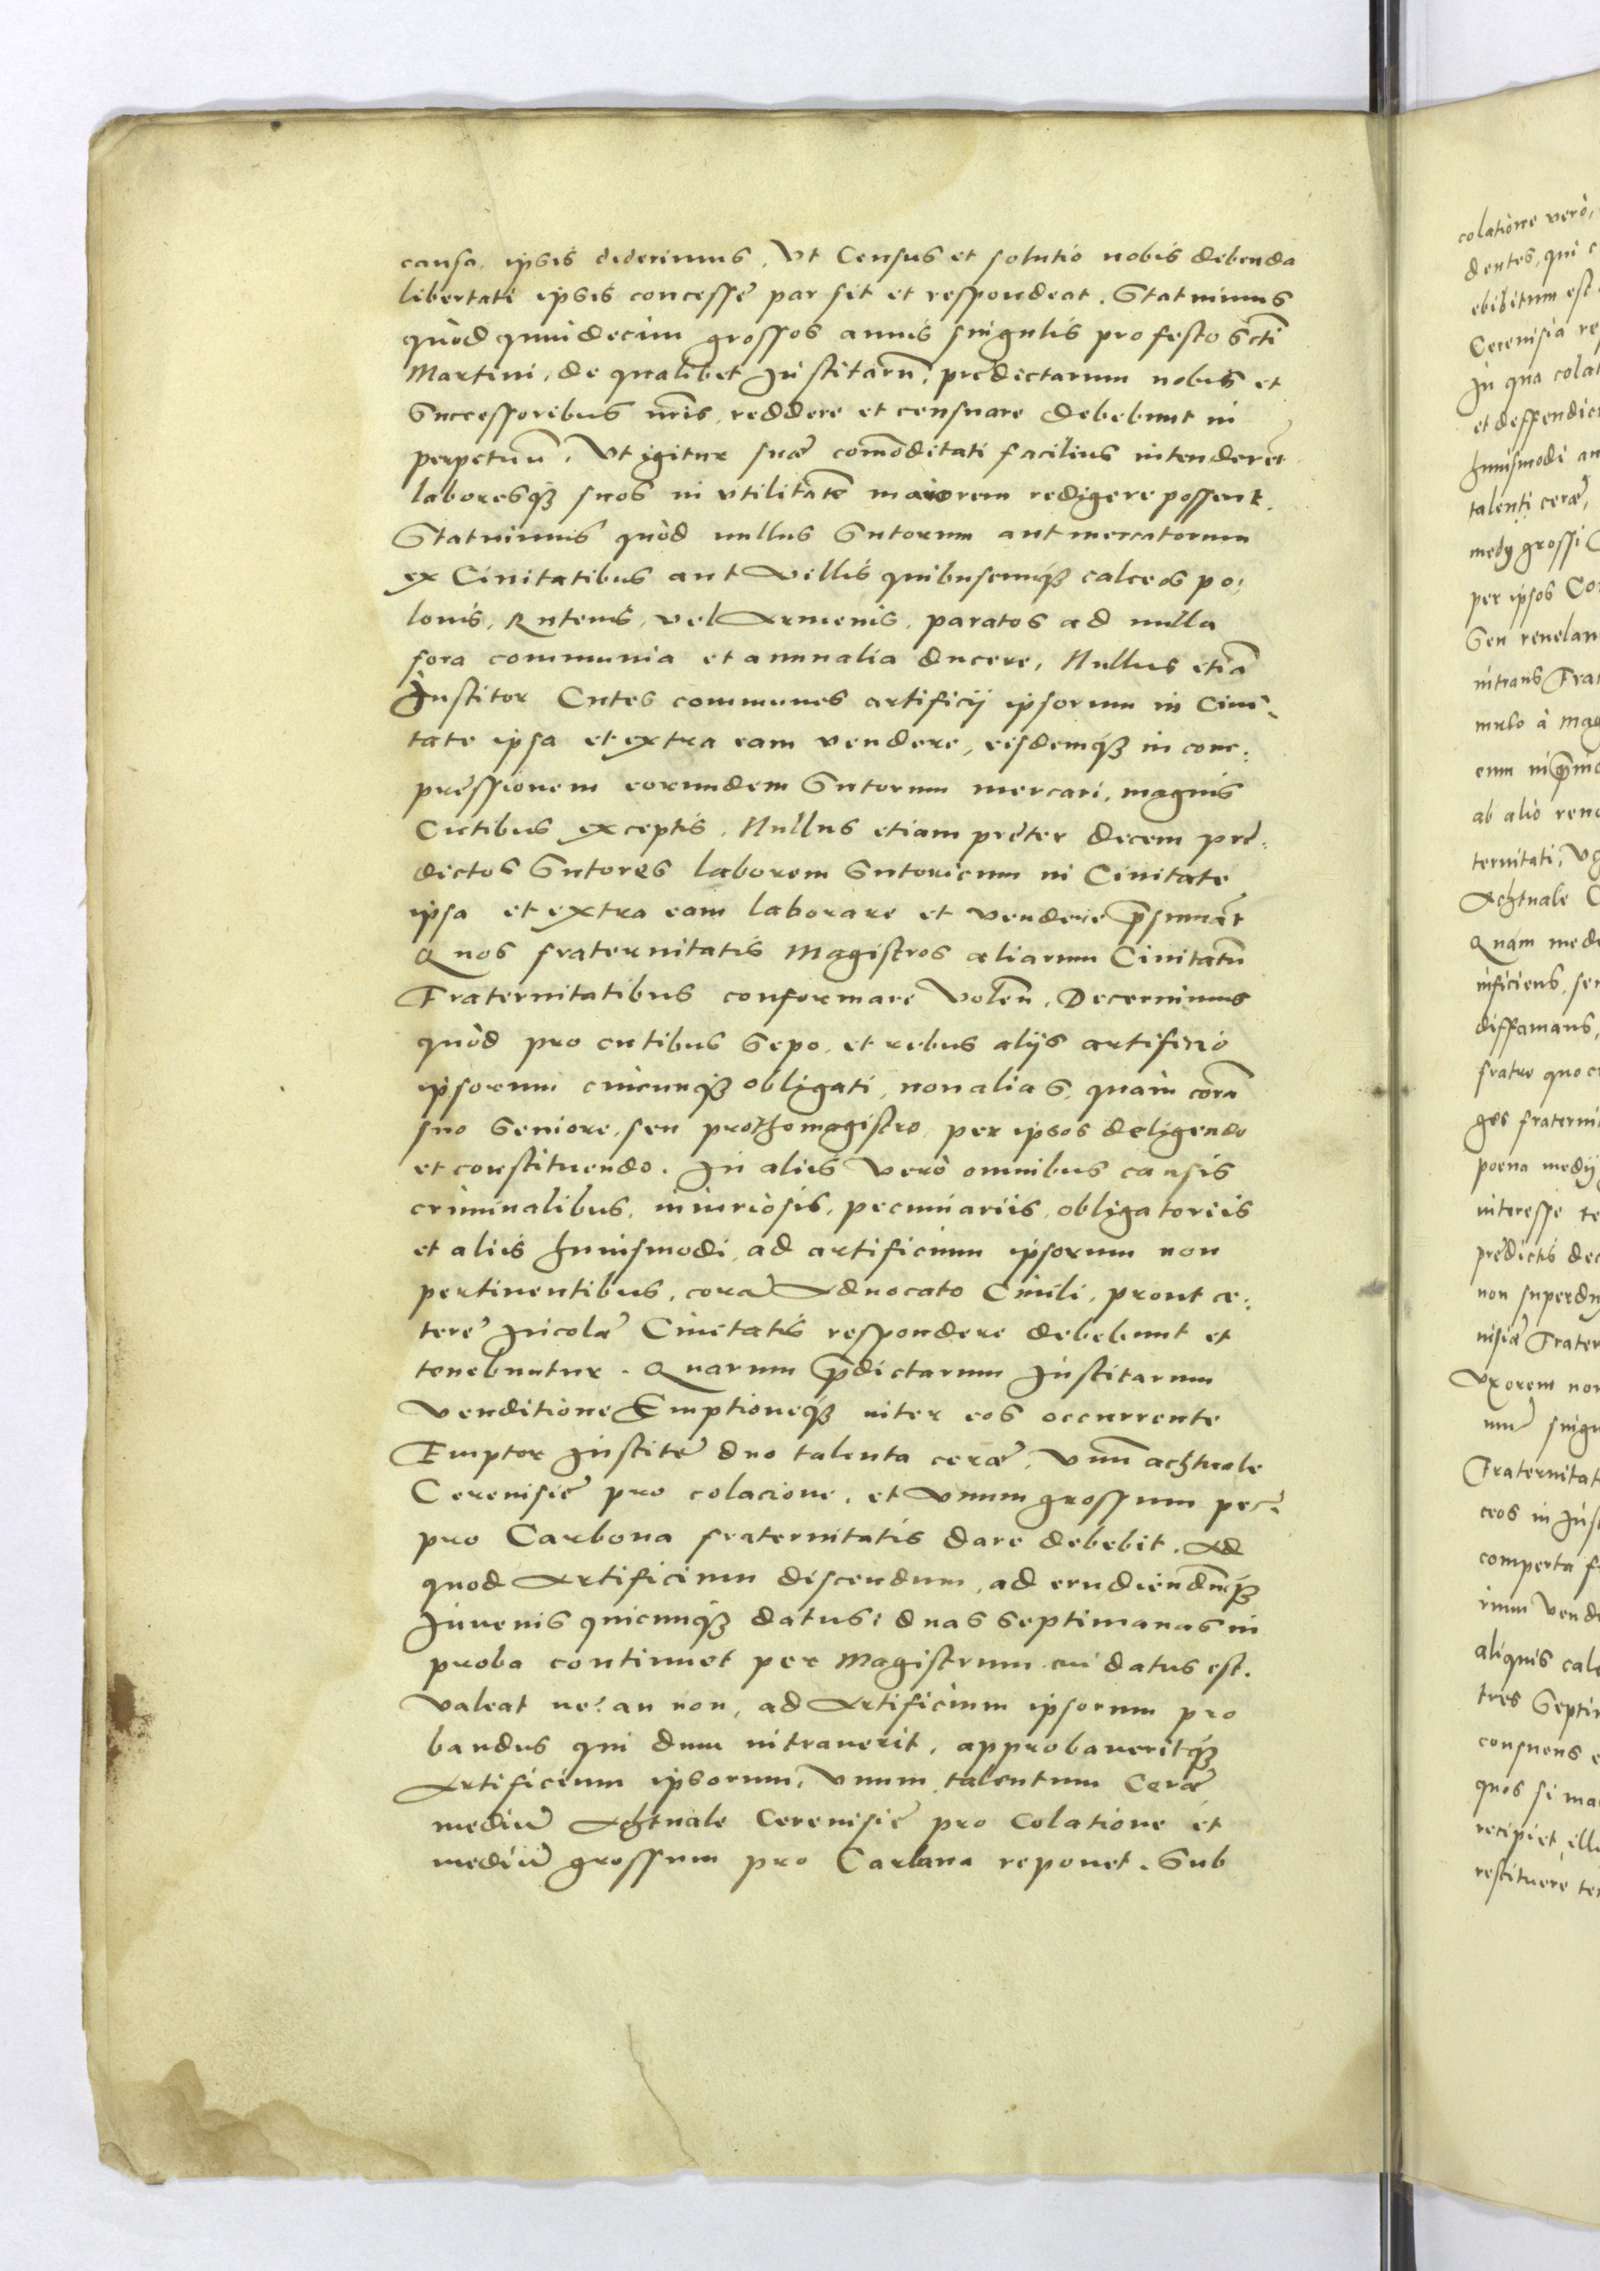 causa, ipsis dederimus, Vt Census et solutio nobis debenda
libertati ipsis concessę par sit et respondeat. Statuimus
quòd quindecim grossos annis singulis pro festo Scti
Martini, de qualibet Institarũ, prędictarum nobis et
Successoribus nr̃is, reddere et censuare debebunt in
perpetuũ. Vt igitur suæ com̃oditati facilius intenderẽt
laboresqꝫ suos in vtilitatẽ maiorem redigere possent.
Statuimus quòd nullus Sutorum aut mercatorum
ex Ciuitatibus aut Villis quibuscunqꝫ calceos po:
lonis, Rutenis, vel Armenis, paratos ad nulla
fora communia et annualia ducere, Nullus etiã
Institor Cutes communes artificij ipsorum in Ciui:
tate ipsa et extra eam vendere, eisdemqꝫ in com:
pressionem eorundem Sutorum mercari, magnis
Cutibus exceptis. Nullus etiam pręter decem prę:
dictos Sutores laborem Sutoricum in Ciuitate
ipsa et extra eam laborare et vendere p̃sumãt
Quos fraternitatis Magistros aliarum Ciuitatũ
Fraternitatibus conformare Volen̄. Decernimus
quòd pro cutibus Sepo, et rebus alijs artificio
ipsorum cuicunqꝫ obligati, non alias, quàm corã
suo Seniore, seu prothomagistro, per ipsos deligendo
et constituendo. In alijs Verò omnibus causis
criminalibus, iniuriosis, pecuniariis, obligatoriis
et aliis huiusmodi, ad artificium ipsorum non
pertinentibus, corã Aduocato Ciuili, prout ce:
terę Incolæ Ciuitatis respondere debebunt et
tenebuntur. Quarum p̃dictarum Institarum
Venditione Emptioneqꝫ inter eos occurrente
Emptor Institę duo talenta ceræ, Vnũ achtuale
Cereuisię pro colacione, et Vnum grossum pec:
pro Carbona fraternitatis dare debebit. Ad
quod Artificium discendum, ad erudiendũqꝫ
Iuuenis quicunqꝫ datus: duas septimanas in
proba continuet per Magistrum cui datus est.
Valeat ne? an non, ad Artificium ipsorum pro
bandus qui dum intrauerit, approbaueritqꝫ
Artificium ipsorum, Vnum talentum Ceræ
mediũ Achtuale Cereuisię pro Colatione et
mediũ grossum pro Carbana reponet. Sub
colatione verò,
dentes, qui
ebibitum est
Cereuisia
In qua
et
huiusmodi
talenti ceræ,
medij grossi
per ipsos
Seu
intrans
à
eum
ab alio
ternitati,
Achtuale
Quàm
inficiens,
diffamans,
fratre
poena medij
interesse
prędictis
non
Vxorem non
in
comperta
aliquis
tres
quos si
recipiet
restituere